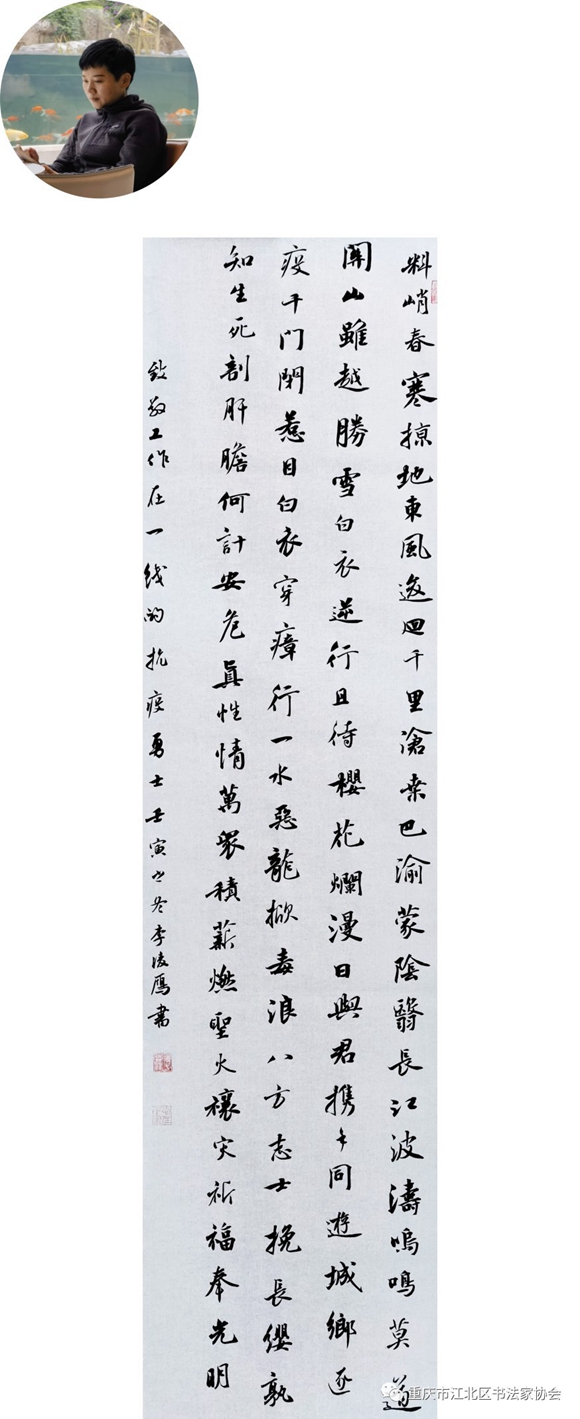 料峭春寒掠地東風邊迴千里滄桑巴渝蒙陰翳長江波濤嗚鳴莫道
關山雖越勝雪白衣逆行且待櫻花爛漫日與君携手同遊城鄉逐
疫千門閉惹目白衣穿瘴行一水惡龍掀毒浪八方志士挽長纓孰
知生死剖肝膽何計安危真性情萬衆積薪燃聖火禳灾祈福奉光明
致敬工作在一线的抗疫勇士壬寅之冬李凌鴈書
重庆市江北区书法家协会